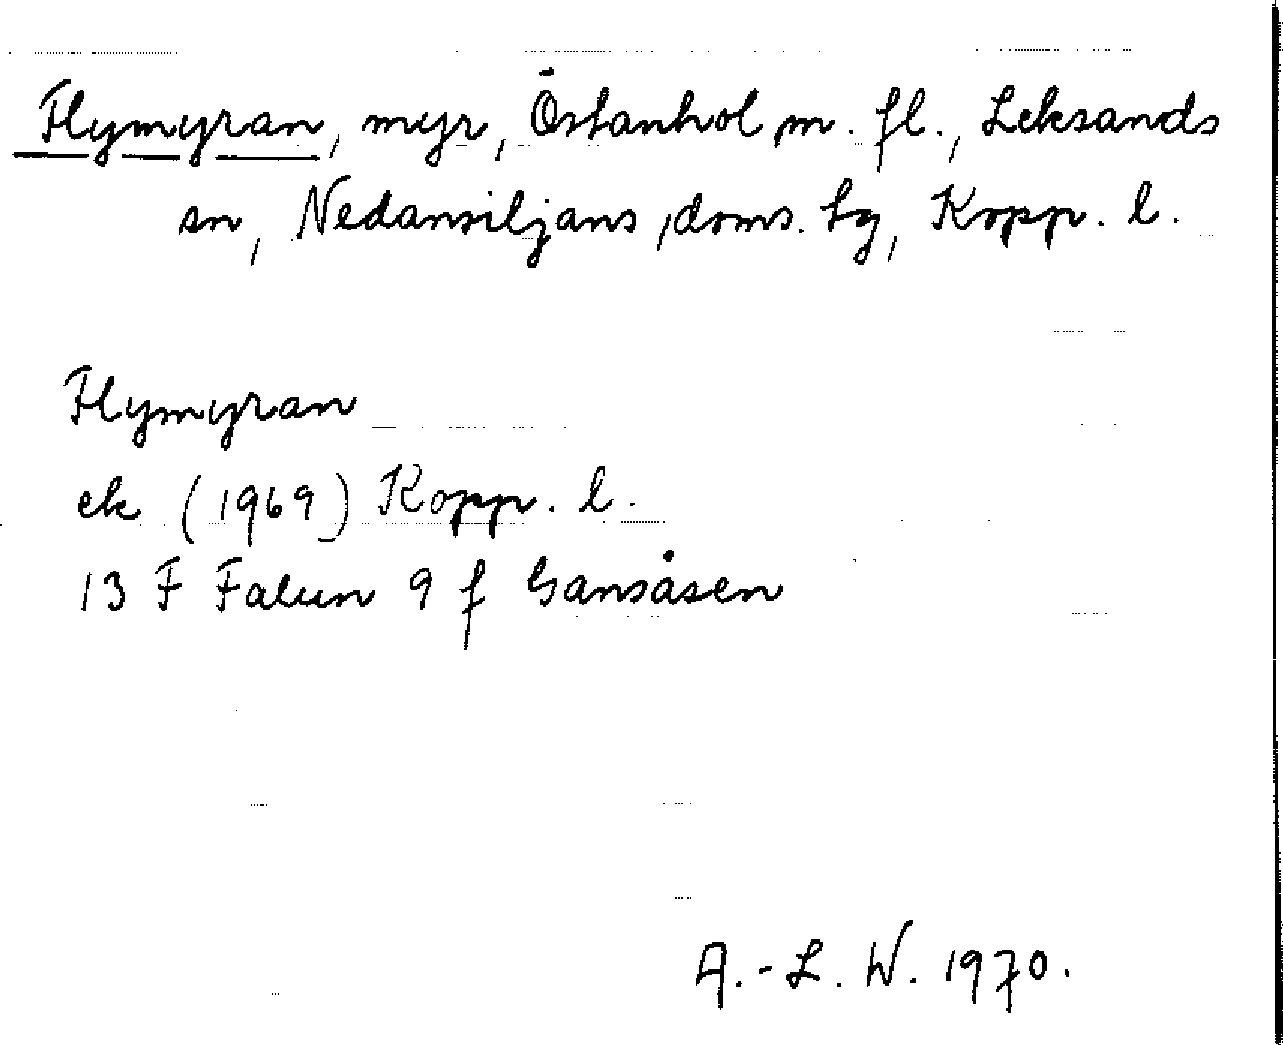 Flymyran, myr, Östanhol m. fl., Leksands
sn, Nedansiljans doms. tg, Kopp. l.
Flymyran
ek (1969) Kopp. l.
13 F Falun 9 f Gansåsen
A.-L. W. 1970.